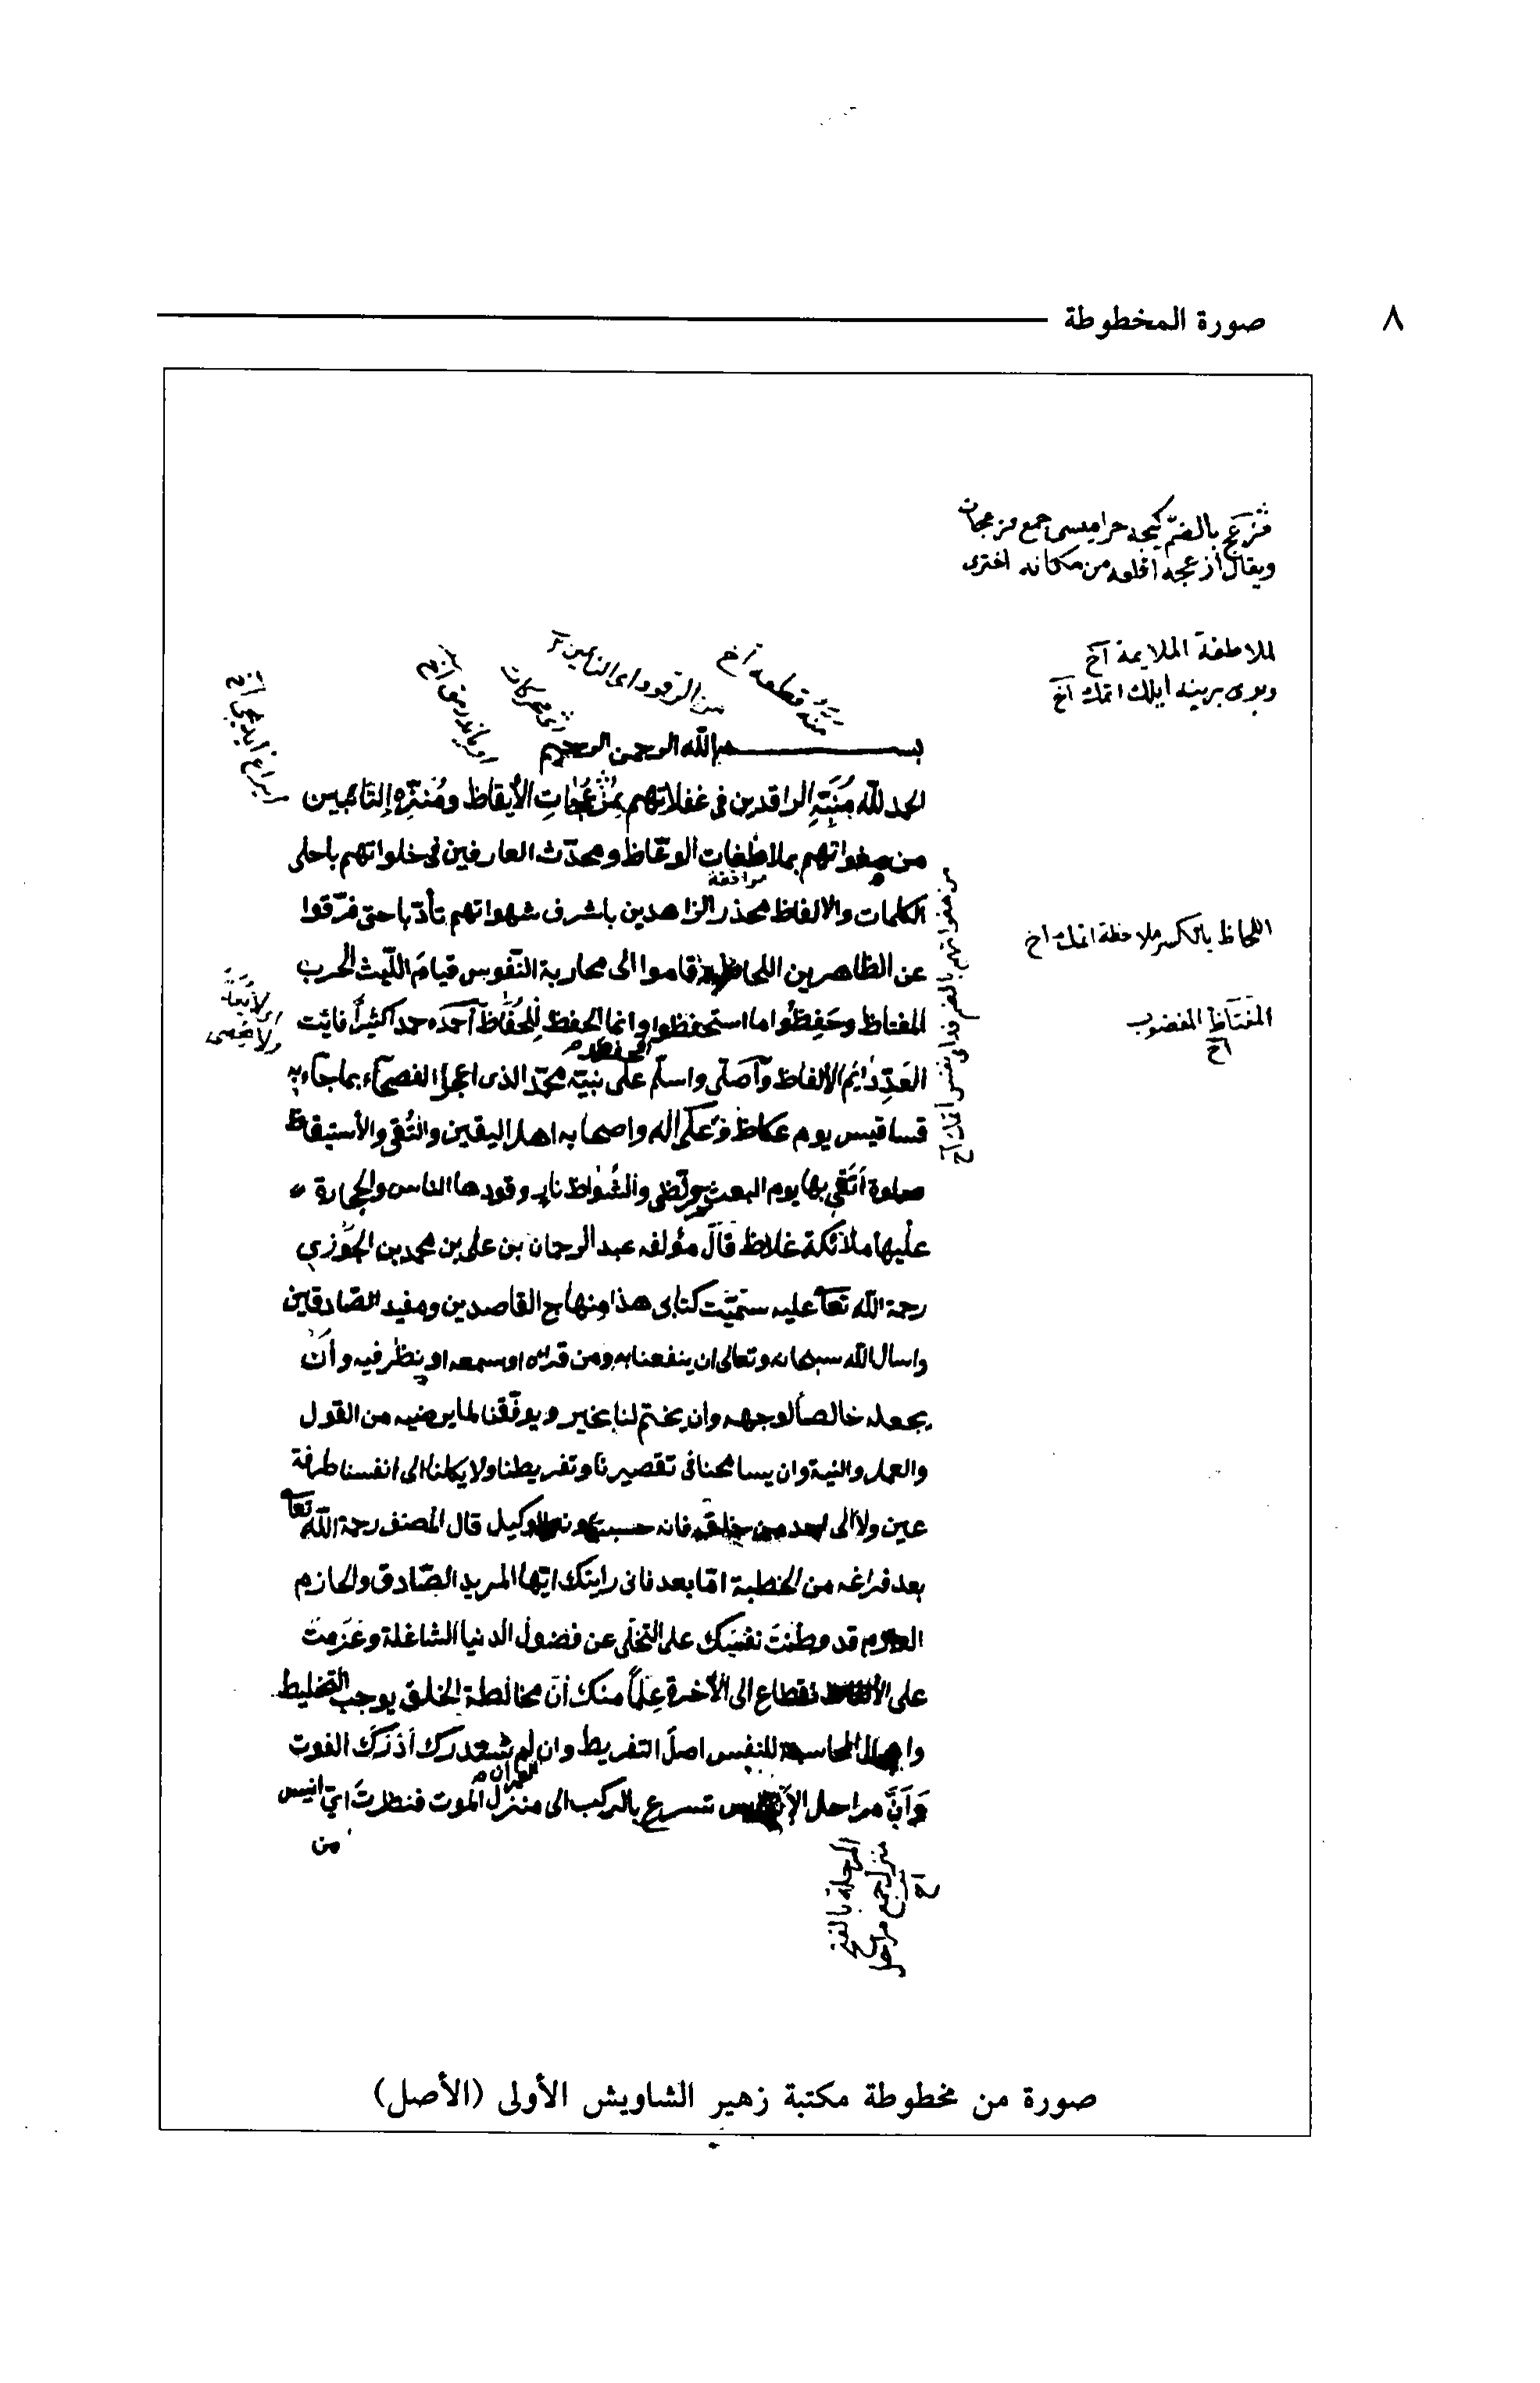 ٨
صورة المخطوطة
ويقال ازعجه اقلعه من مكانه اختری
الملاطفة الملايمة اخ
بسم الله الرحمن الرحيم
الحمد لله مُنَبِّهِ الراقدين في غفلاتهم بمُزْعِجَاتِ الأيقاظ ومُنَزِّهِ التائبين
من هفواتهم بملاطفات الوعّاظ ومحدّث العارفين في خلواتهم باحلى
موافقة
الكلمات والالفاظ محذر الزاهدين باشرف شهواتهم تأدّبا حتى فرّقوا
عن الظاهرين اللحاظ قاموا الى محاربة النّفوس قيامَ اللّيث الحرب
اللحاظ بالكسر ملاحظة اتمك اخ
المغتاظ وحَفِظُوا ما استحفظوا وانما الحفظ لِلحُفَّاظ أحمَدُه حمداً كثيراً فائت
المغتاظ المغضوب
اخ
العَدِّ دَائِم الالفاظ وأصلّي واسلّم على نبيّه محمّد الذى اعجز الفصحآء بما جآء به
قسا قيس يوم عكاظ وَعَلَى اله واصحابه اهل اليقين والتُّقى والأستيقاظ
صلوة أَتَّقي بها يوم البعث حر لظى والشُواظ نار وقودها الناس والحجارة
عليها ملائكة غلاظ قال مؤلفه عبد الرحمان بن على بن محمد بن الجَوْزي
رحمة الله تعا عليه سَمَّيْت كتابى هذا منهاج القاصدين ومفيد الصّادقين
واسال الله سبحانه وتعالى ان ينفعنا به ومن قراه او سمعه او ينظر فيه وأَنْ
يجعله خالصاً لوجهه وان يختم لنا بخير ويوفّقنا لما يرضيه من القول
والعمل والنية وان يسامحنا في تقصيرنا وتفريطنا ولا يكلنا الى انفسنا طرفة
عين ولا الى احد من خلقه فانه حسبنا ونعم الوكيل قال المصنف رحمة اللّه تعا
بعد فراغه من الخطبة امّا بعد فانى رايتك ايّها المريد الصّادق والحازم
العازم قد وطنت نفسك على التخلّى عن فضول الدنيا الشاغلة وعَزَمتَ
على الانقطاع الى الأخرة عِلْماً منك أنّ مخالطة الخلق يوجب التخليط
واهمال المحاسبة للنفس اصل التفريط وان لم تستدرك أدْرَكَك الفوت
وَأنَّ مراحل الأنفاس تسرع بالركب الى منزل الموت فنظرتَ ايّ انيس
من
صورة من مخطوطة مكتبة زهير الشاويش الأولى (الأصل)